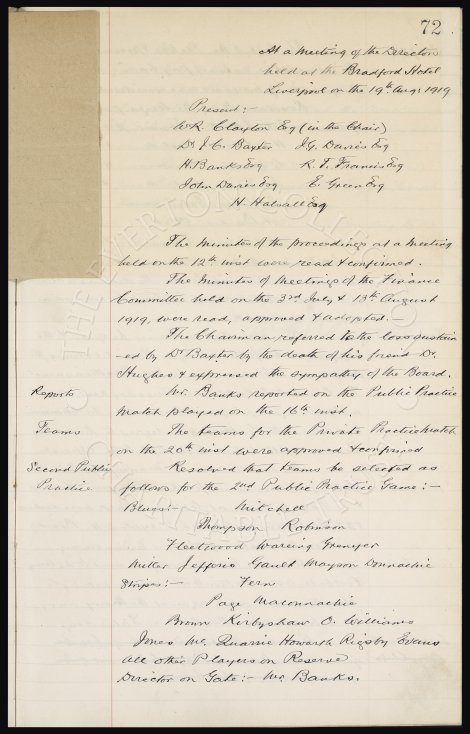 72.
At a meeting of the Directors
held at the Bradford Hotel
Liverpool on the 19th Augt 1919
Present:-
W.R. Clayton Esq (in the Chair)
Dr J.C. Baxter J.G. Davies Esq
H. Banks Esq R.T. Francis Esq
John Davies Esq E. Green Esq
H. Halsall Esq
The minutes of the proceedings at a Meeting
held on the 12th inst were read & confirmed.
The Minutes of Meetings of the Finance
Committee held on the 3rd July & 13th August
1919, were read, approved & adopted.
The Chairman referred to the loss sustain
-ed by Dr Baxter by the death of his friend Dr.
Hughes & expressed the sympathy of the Board.
Reports Mr. Banks reported on the Public Practice
Match played on the 16th inst.
Teams The teams for the Private Practice Match
on the 20th inst were approved & confirmed
Second Public Resolved that teams be selected as
Practice follows for the 2nd Public Practice Game:-
Blues:- Mitchell
Thompson Robinson
Fleetwood Wareing Grenyer
Miller Jefferis Gauld Mayson Donnachie
Stripes:- Fern
Page Maconnachie
Brown Kirbyshaw O. Williams
Jones Mc. Quarrie Howarth Rigsby Evans
All other Players on Reserve
Director on Gate:- Mr. Banks.
THE EVERTON COLLECTION
CHARITABLE TRUST